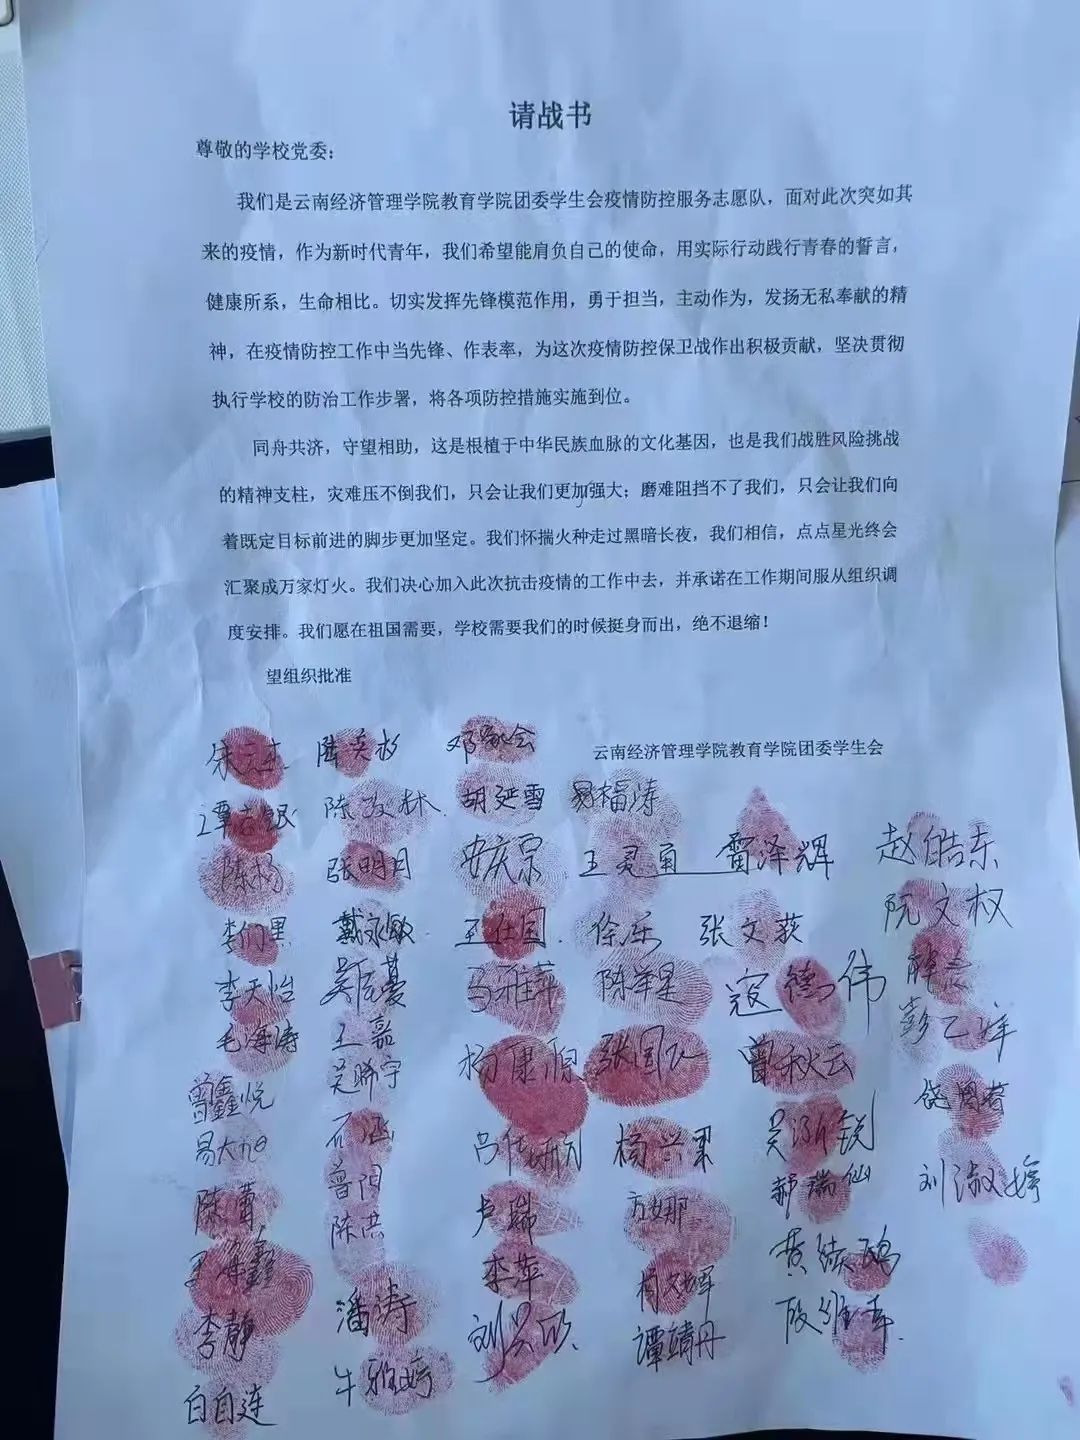 请战书
尊敬的学校党委：
我们是云南经济管理学院教育学院团委学生会疫情防控服务志愿队，面对此次突如其
来的疫情，作为新时代青年，我们希望能肩负自己的使命，用实际行动践行青春的誓言，
健康所系，生命相比。切实发挥先锋模范作用，勇于担当，主动作为，发扬无私奉献的精
神，在疫情防控工作中当先锋、作表率，为这次疫情防控保卫战作出积极贡献，坚决贯彻
执行学校的防治工作步署，将各项防控措施实施到位。
同舟共济，守望相助，这是根植于中华民族血脉的文化基因，也是我们战胜风险挑战
的精神支柱，灾难压不倒我们，只会让我们更加强大；磨难阻挡不了我们，只会让我们向
着既定目标前进的脚步更加坚定。我们怀揣火种走过黑暗长夜，我们相信，点点星光终会
汇聚成万家灯火。我们决心加入此次抗击疫情的工作中去，并承诺在工作期间服从组织调
度安排。我们愿在祖国需要，学校需要我们的时候挺身而出，绝不退缩！
望组织批准
云南经济管理学院教育学院团委学生会
谭志银 胡延雪 易福涛
陈杨 张明月 安庆宗 王灵通 雷泽辉 赵皓东
戴永敏 王仕国 徐乐 张文荻 阮文权
李天怡 马雅苹 陈举星 寇德伟
毛海涛 王嘉 杨康源 曾秋云
曾鑫悦 吴晞宇
石涵 吕伟航 杨兴翠 吴浙锐
陈蕾 曾阳 卢瑞 方娜 郝瑞仙 刘淑婷
陈洪 李萍
李静 潘涛 谭靖丹
白自连 牛雅婷